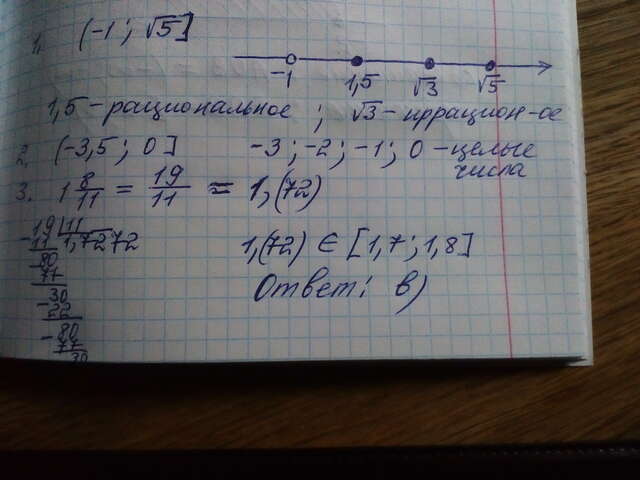 1. (-1 ; √5]
-1 1,5 √3 √5
1,5 - рациональное ; √3 - иррацион-ое
2. (-3,5 ; 0] -3 ; -2 ; -1 ; 0 - целые
числа
3. 1 8/11 = 19/11 = 1,(72)
19 | 11
- 11 1,7272
80
77
30
- 22
80
- 77
30
1,(72) ∈ [1,7 ; 1,8]
Ответ: в)